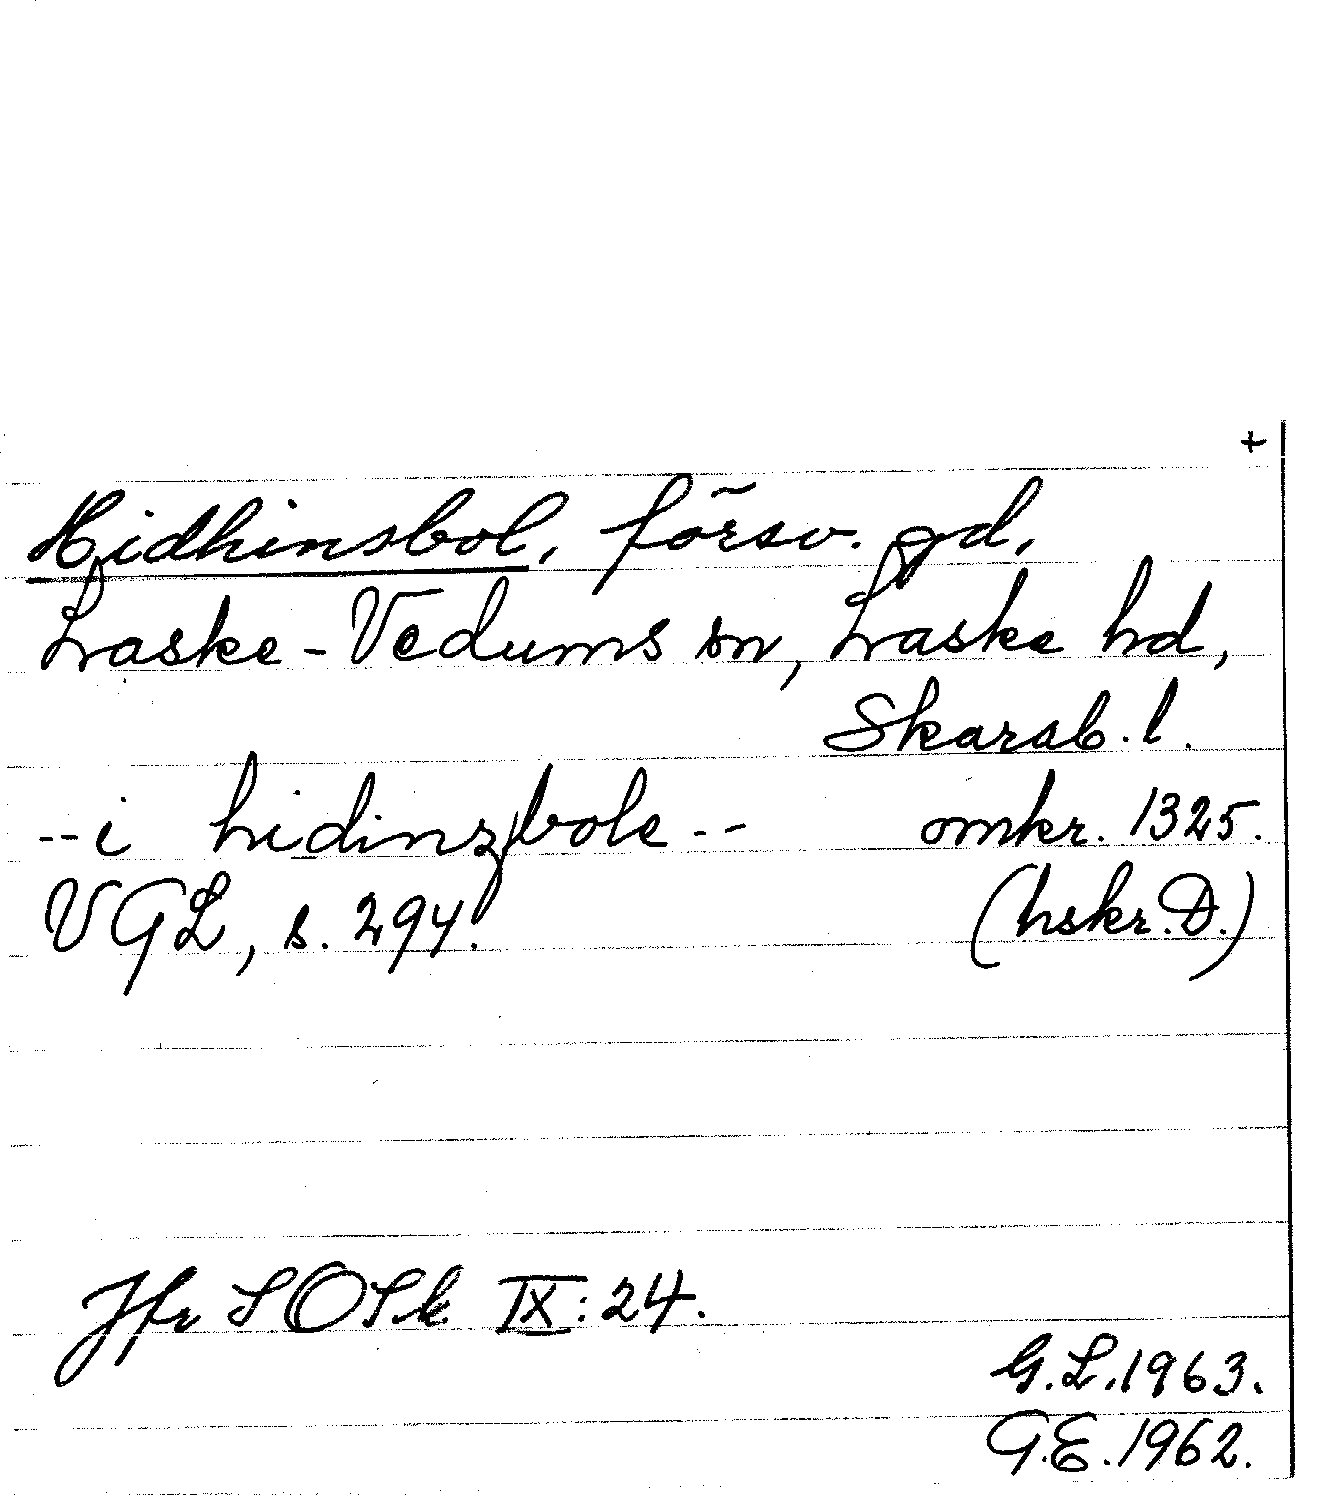 +
Hidhinsbol, försv. gd,
Laske-Vedums sn, Laske hd,
Skarab. l.
--i hidinz|bole-- omkr. 1325.
VGL, s. 294. (hskr. D.)
Jfr SOSk IX:24.
G.L.1963.
G.E.1962.